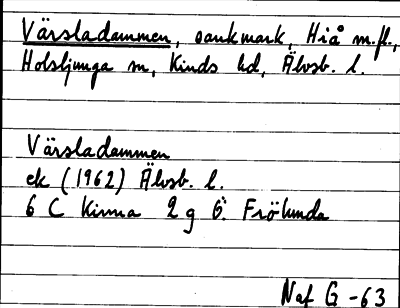 Värsladammen, sankmark, Hiå m.fl.,
Holsljunga sn, Kinds hd, Älvsb. l.
Värsladammen
ek (1962) Älvsb. l.
6 C Kinna 2 g Ö. Frölunda
Naf G-63